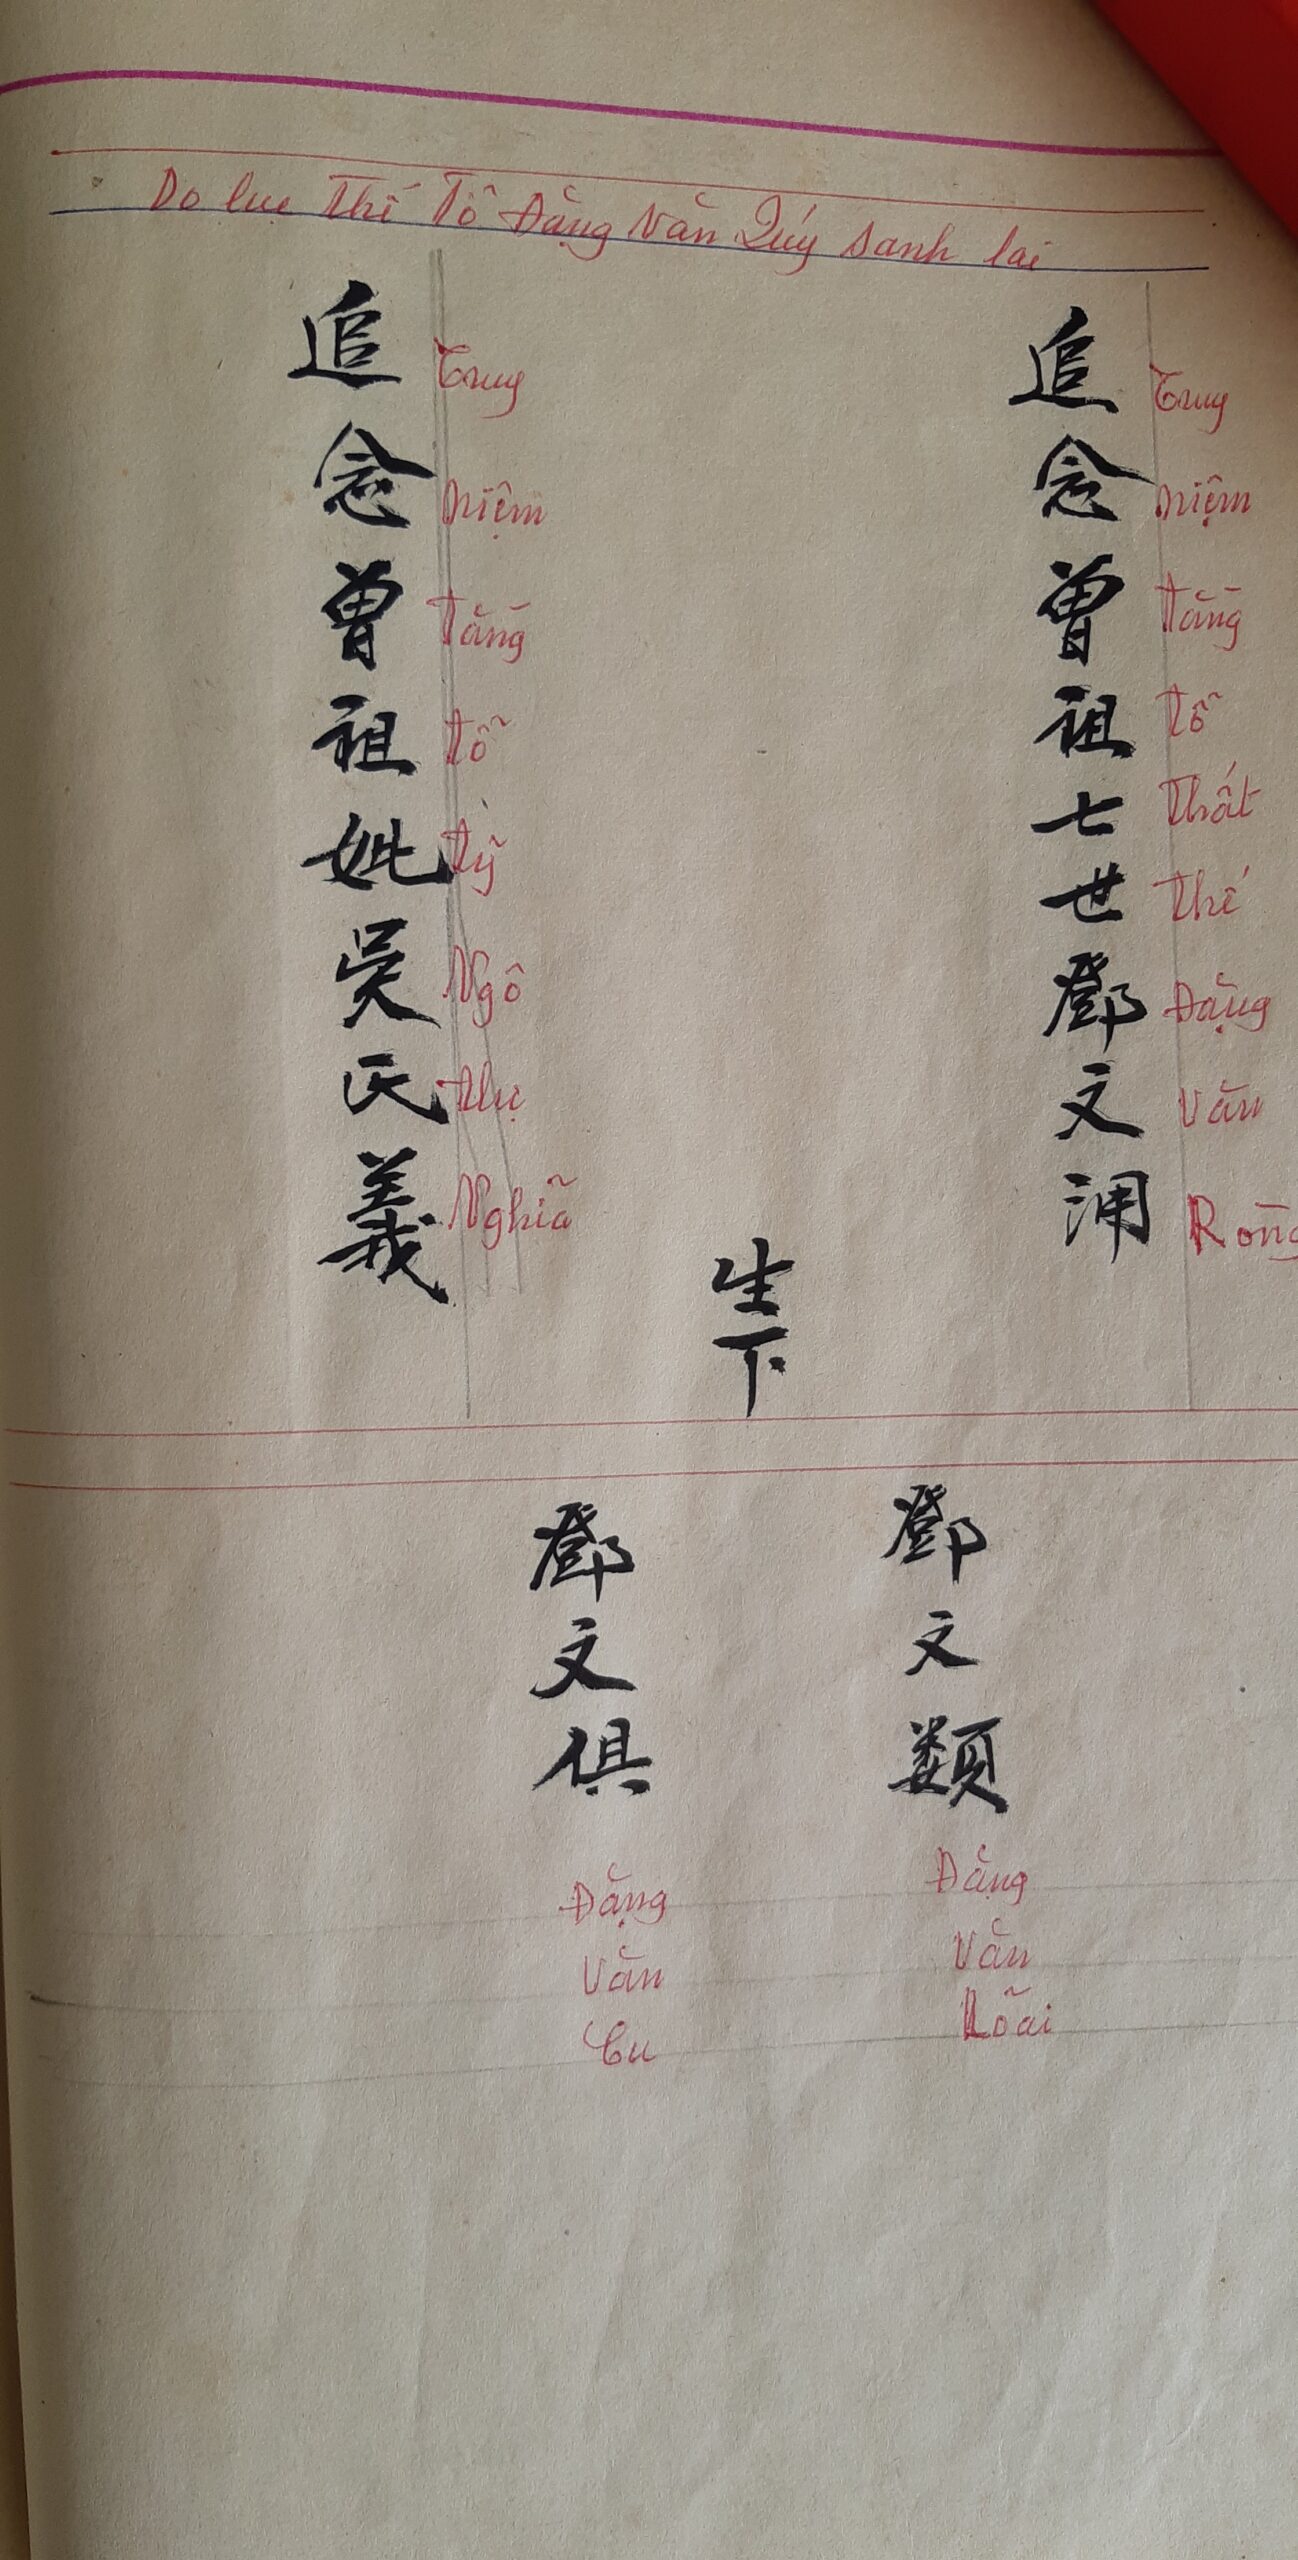 Do lục Thế Tổ Đặng Văn Quý sanh lai
追念曾祖七世鄧文涌
Truy niệm tằng tổ Thất thế Đặng Văn Ròng
追念曾祖妣吳氏義
Truy niệm tằng tổ tỷ Ngô thị Nghĩa
生下
鄧文類
Đặng Văn Lõai
鄧文俱
Đặng Văn Cu